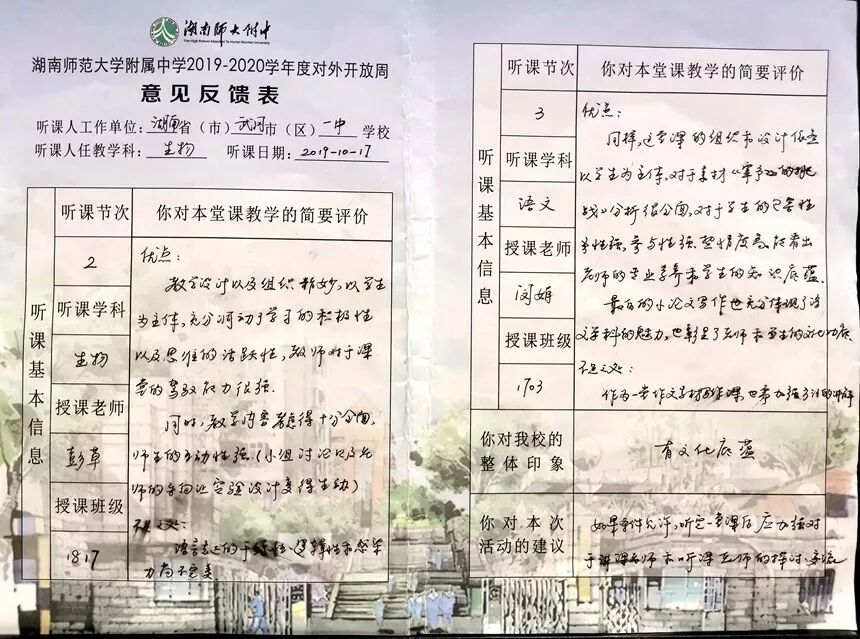 湖南师大附中
The High School Attached To Hunan Normal University
湖南师范大学附属中学2019-2020学年度对外开放周
意见反馈表
听课人工作单位：湖南省（市）武冈市（区）一中 学校
听课人任教学科：生物 听课日期：2019-10-17
听课基本信息
听课节次
2
听课学科
生物
授课老师
彭草
授课班级
1817
你对本堂课教学的简要评价
优点：
教学设计以及组织精妙，以学生
为主体，充分调动了学习的积极性
以及思维的活跃性，教师对于课
堂的驾驭能力很强.
同时，教学内容显得十分全面，
师生的互动性强（小组讨论以及老
师的导向让实验设计变得生动）
不足之处：
语言上的
力尚不完美
听课基本信息
听课节次
3
听课学科
语文
授课老师
闵娟
授课班级
1703
你对本堂课教学的简要评价
优点：
同样，这堂课的组织和设计依然
以学生为主体，对于素材《军
战》分析很全面，对于学生的
强，参与性强，整
老师的专业学养和学生的知识底蕴.
最后的小论文写作也充分体现了语
文学科的魅力，也彰显了老师和学生的文化功底
不足之处：
作为一堂作文
你对我校的整体印象
有文化底蕴
你对本次活动的建议
如果条件允许，听完一堂课后应加强对
于授课老师和听课老师的探讨、交流